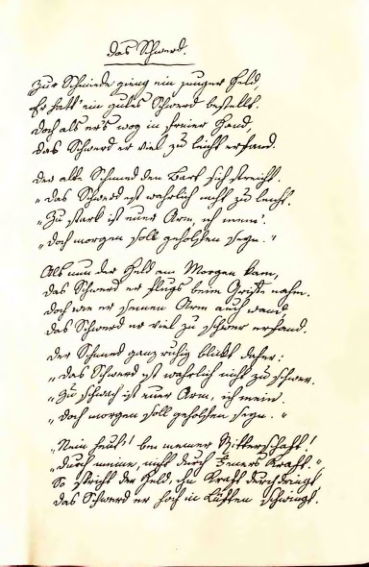 Das Schwerd.
Zur Schmiede ging ein junger Held,
Er hatt' ein gutes Schwerd bestellt.
Doch als er's wog in freier Hand,
das Schwerd er viel zu leicht erfand.
Der alte Schmied den Bart sich streicht.
"Das Schwerd ist wahrlich nicht zu leicht.
"Zu stark ist euer Arm, ich mein'.
"Doch morgen soll geholfen seyn."
Als nun der Held am Morgen kam,
das Schwerd er flugs beim Griffe nahm.
doch wie er seinen Arm auch wand
das Schwerd er viel zu schwer erfand.
Der Schmied ganz ruhig blickt daher:
"Das Schwerd ist wahrlich nicht zu schwer.
"Zu schwach ist euer Arm, ich mein.
"Doch morgen soll geholfen seyn."
"Nein heut'! bei meiner Ritterschaft!
"Durch meine, nicht durch Feuers Kraft."
So spricht der Held, ihn Kraft durchdringt,
das Schwerd er hoch in Lüften schwingt.